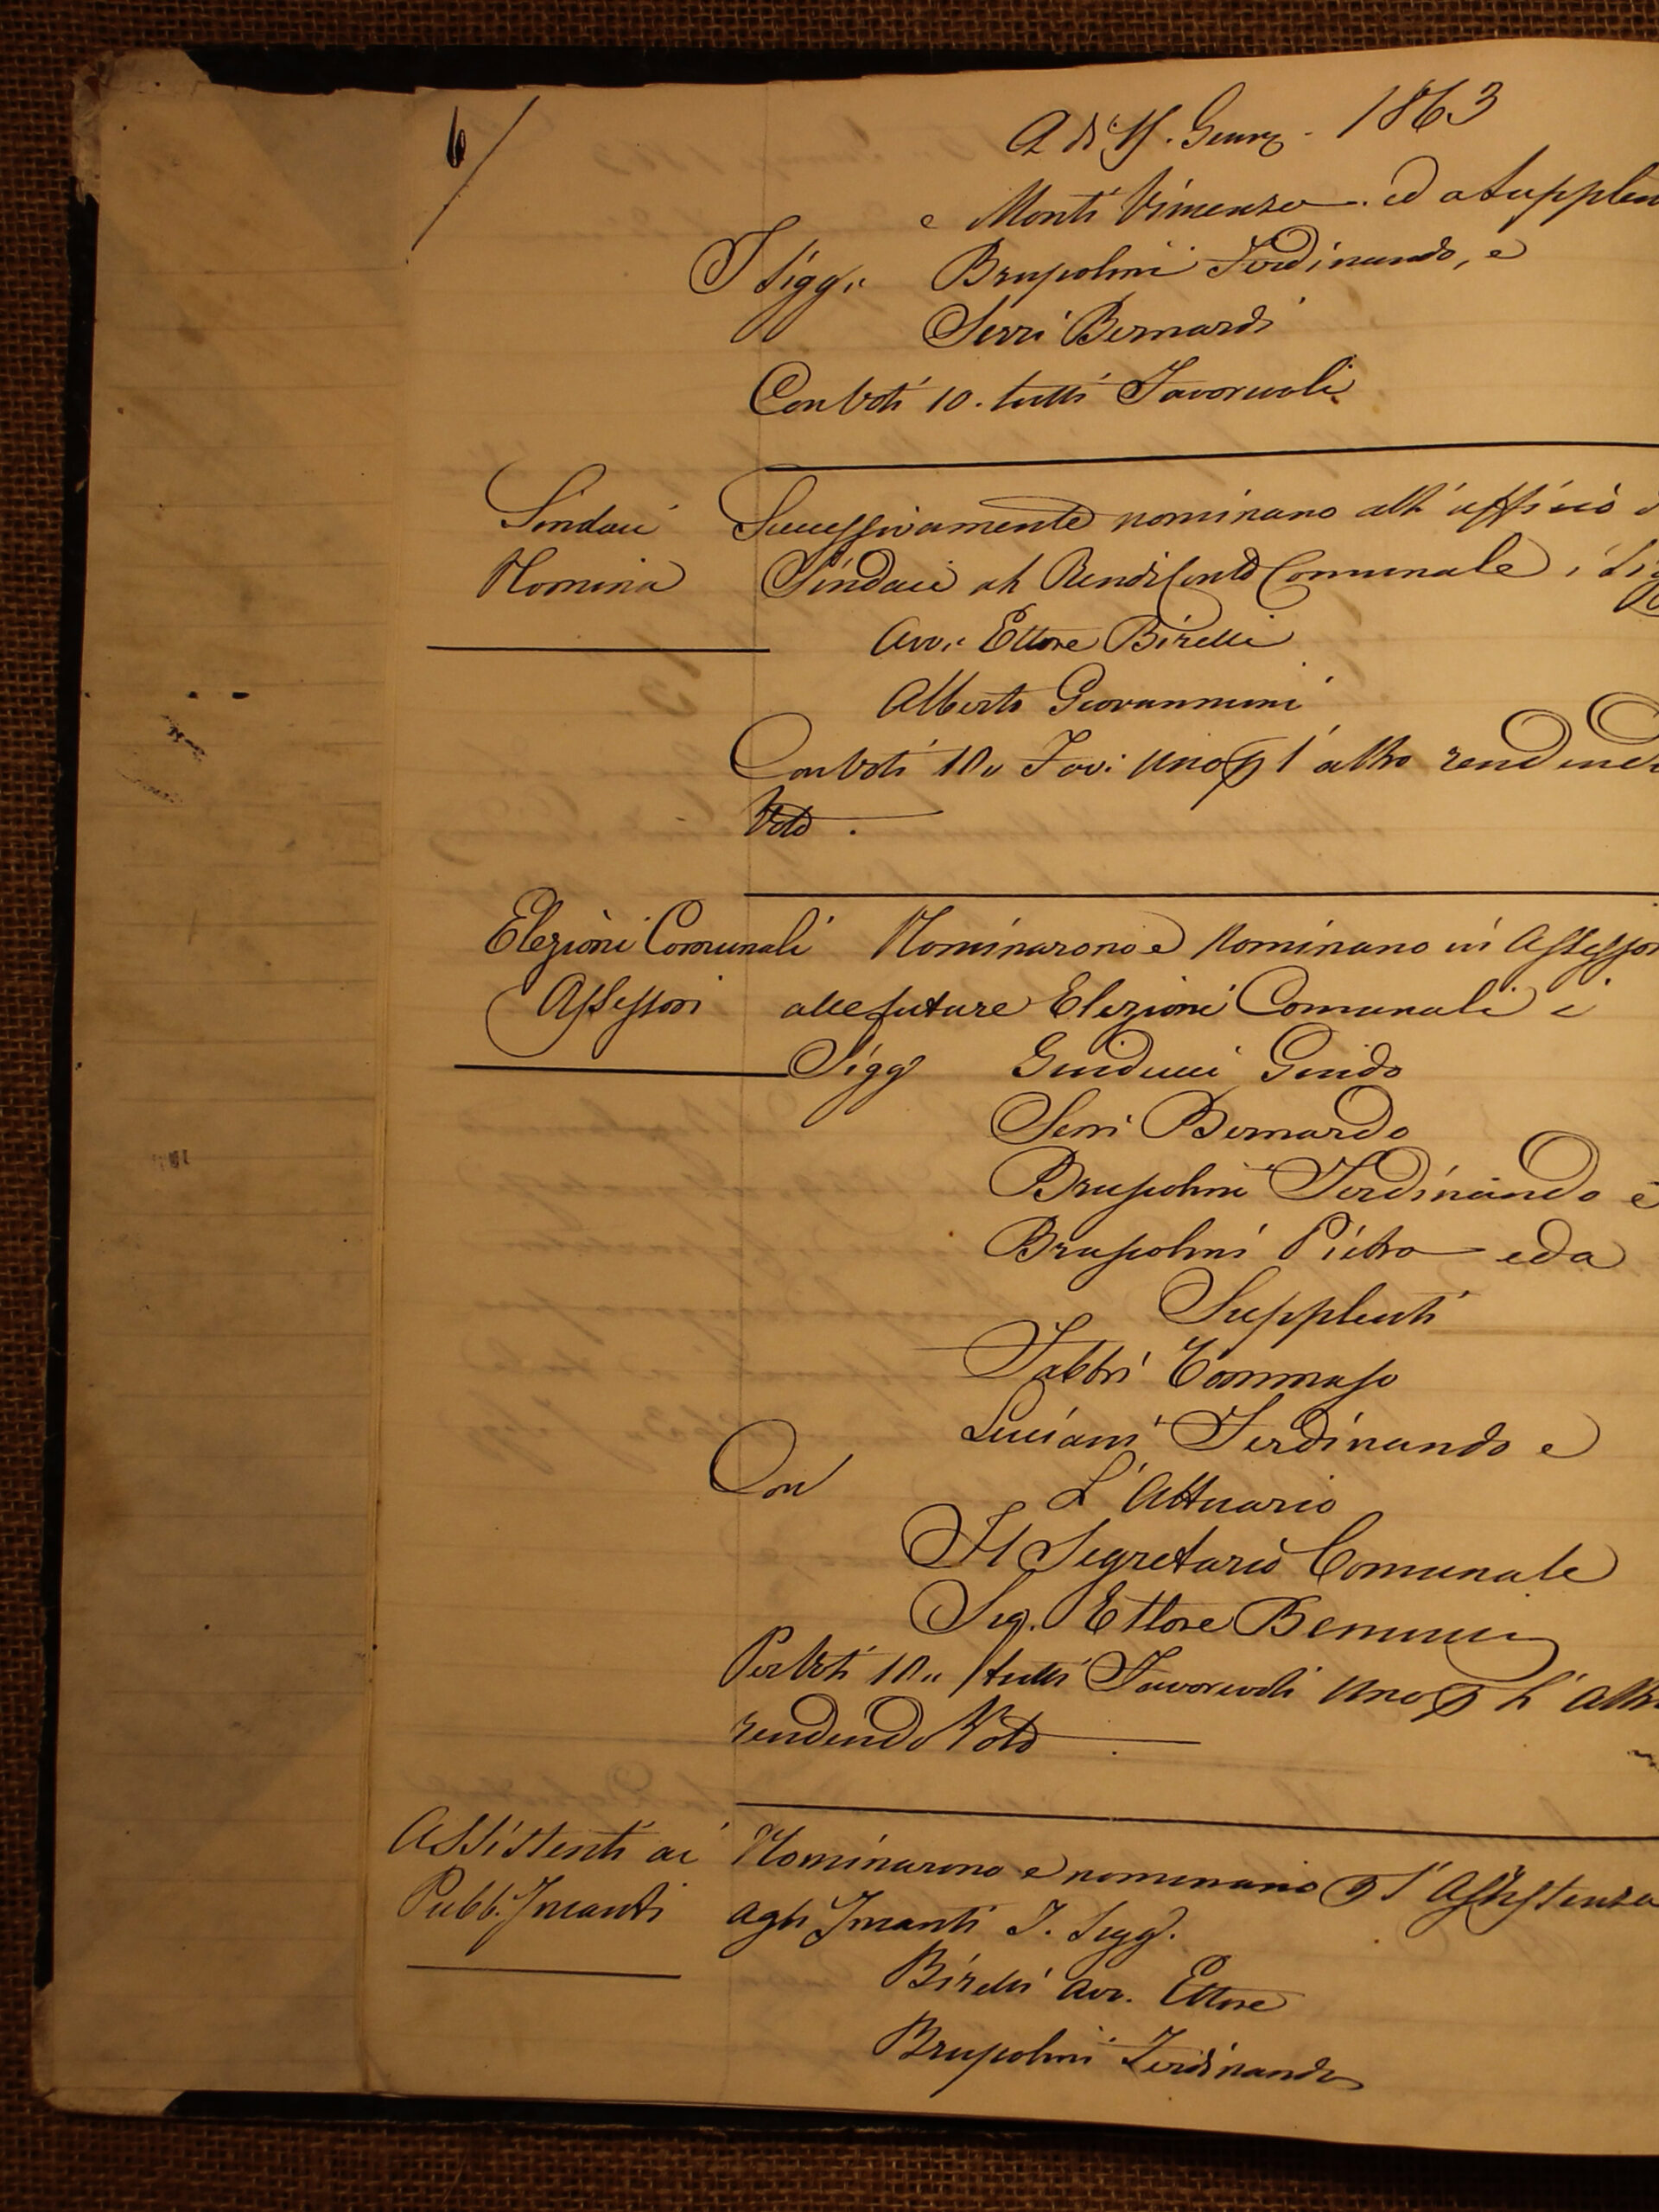 6
A dì 15. Genn. 1863
e Monti Vincenzo. ed a Supplen
I Sigg.
Bruscolini Ferdinando, e
Serri Bernardi
Con Voti 10. tutti Favorevoli
Sindaci
Nomina
Successivamente nominano all' uffizio d
Sindaci al Rendiconto Comunale, i Sig
Avv. Ettore Birelli
Alberto Giovannini
Con Voti 10 Favi uno p l' altro rendend
Voto.
Elezioni Comunali
Assessori
Nominarono e Nominano in Assessor
alle future Elezioni Comunali i
Sigg Guiducci Guido
Serri Bernardo
Bruscolini Ferdinando e
Bruscolini Pietro ed a
Supplenti
Fabbri Tommaso
Luciani Ferdinando e
Con L' Attuario
Il Segretario Comunale
Sig. Ettore
Per Voti 10 tutti Favorevoli uno p l' altr
rendendo Voto.
Assistenti ai
Pubb. Incanti
Nominarono e nominano p l' Assistenza
agli Incanti I. Sigg.
Birelli Avv. Ettore
Bruscolini Ferdinando